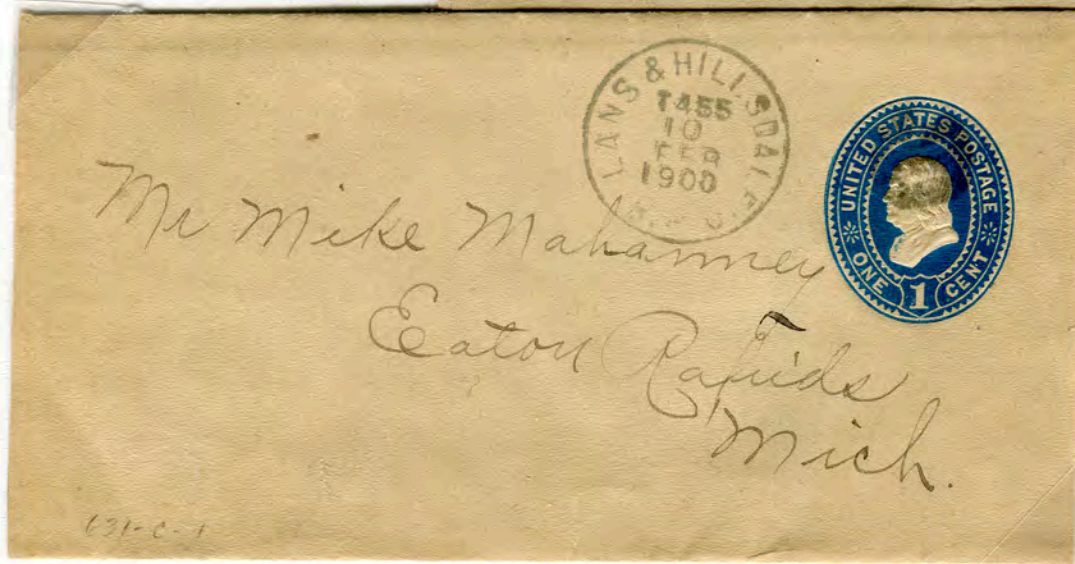 LANS & HILLSDALE
T455
10
FEB
1900
R.P.O.
UNITED STATES POSTAGE
ONE 1 CENT
Mr Mike Mahanney
Eaton Rapids
Mich.
631-C-1